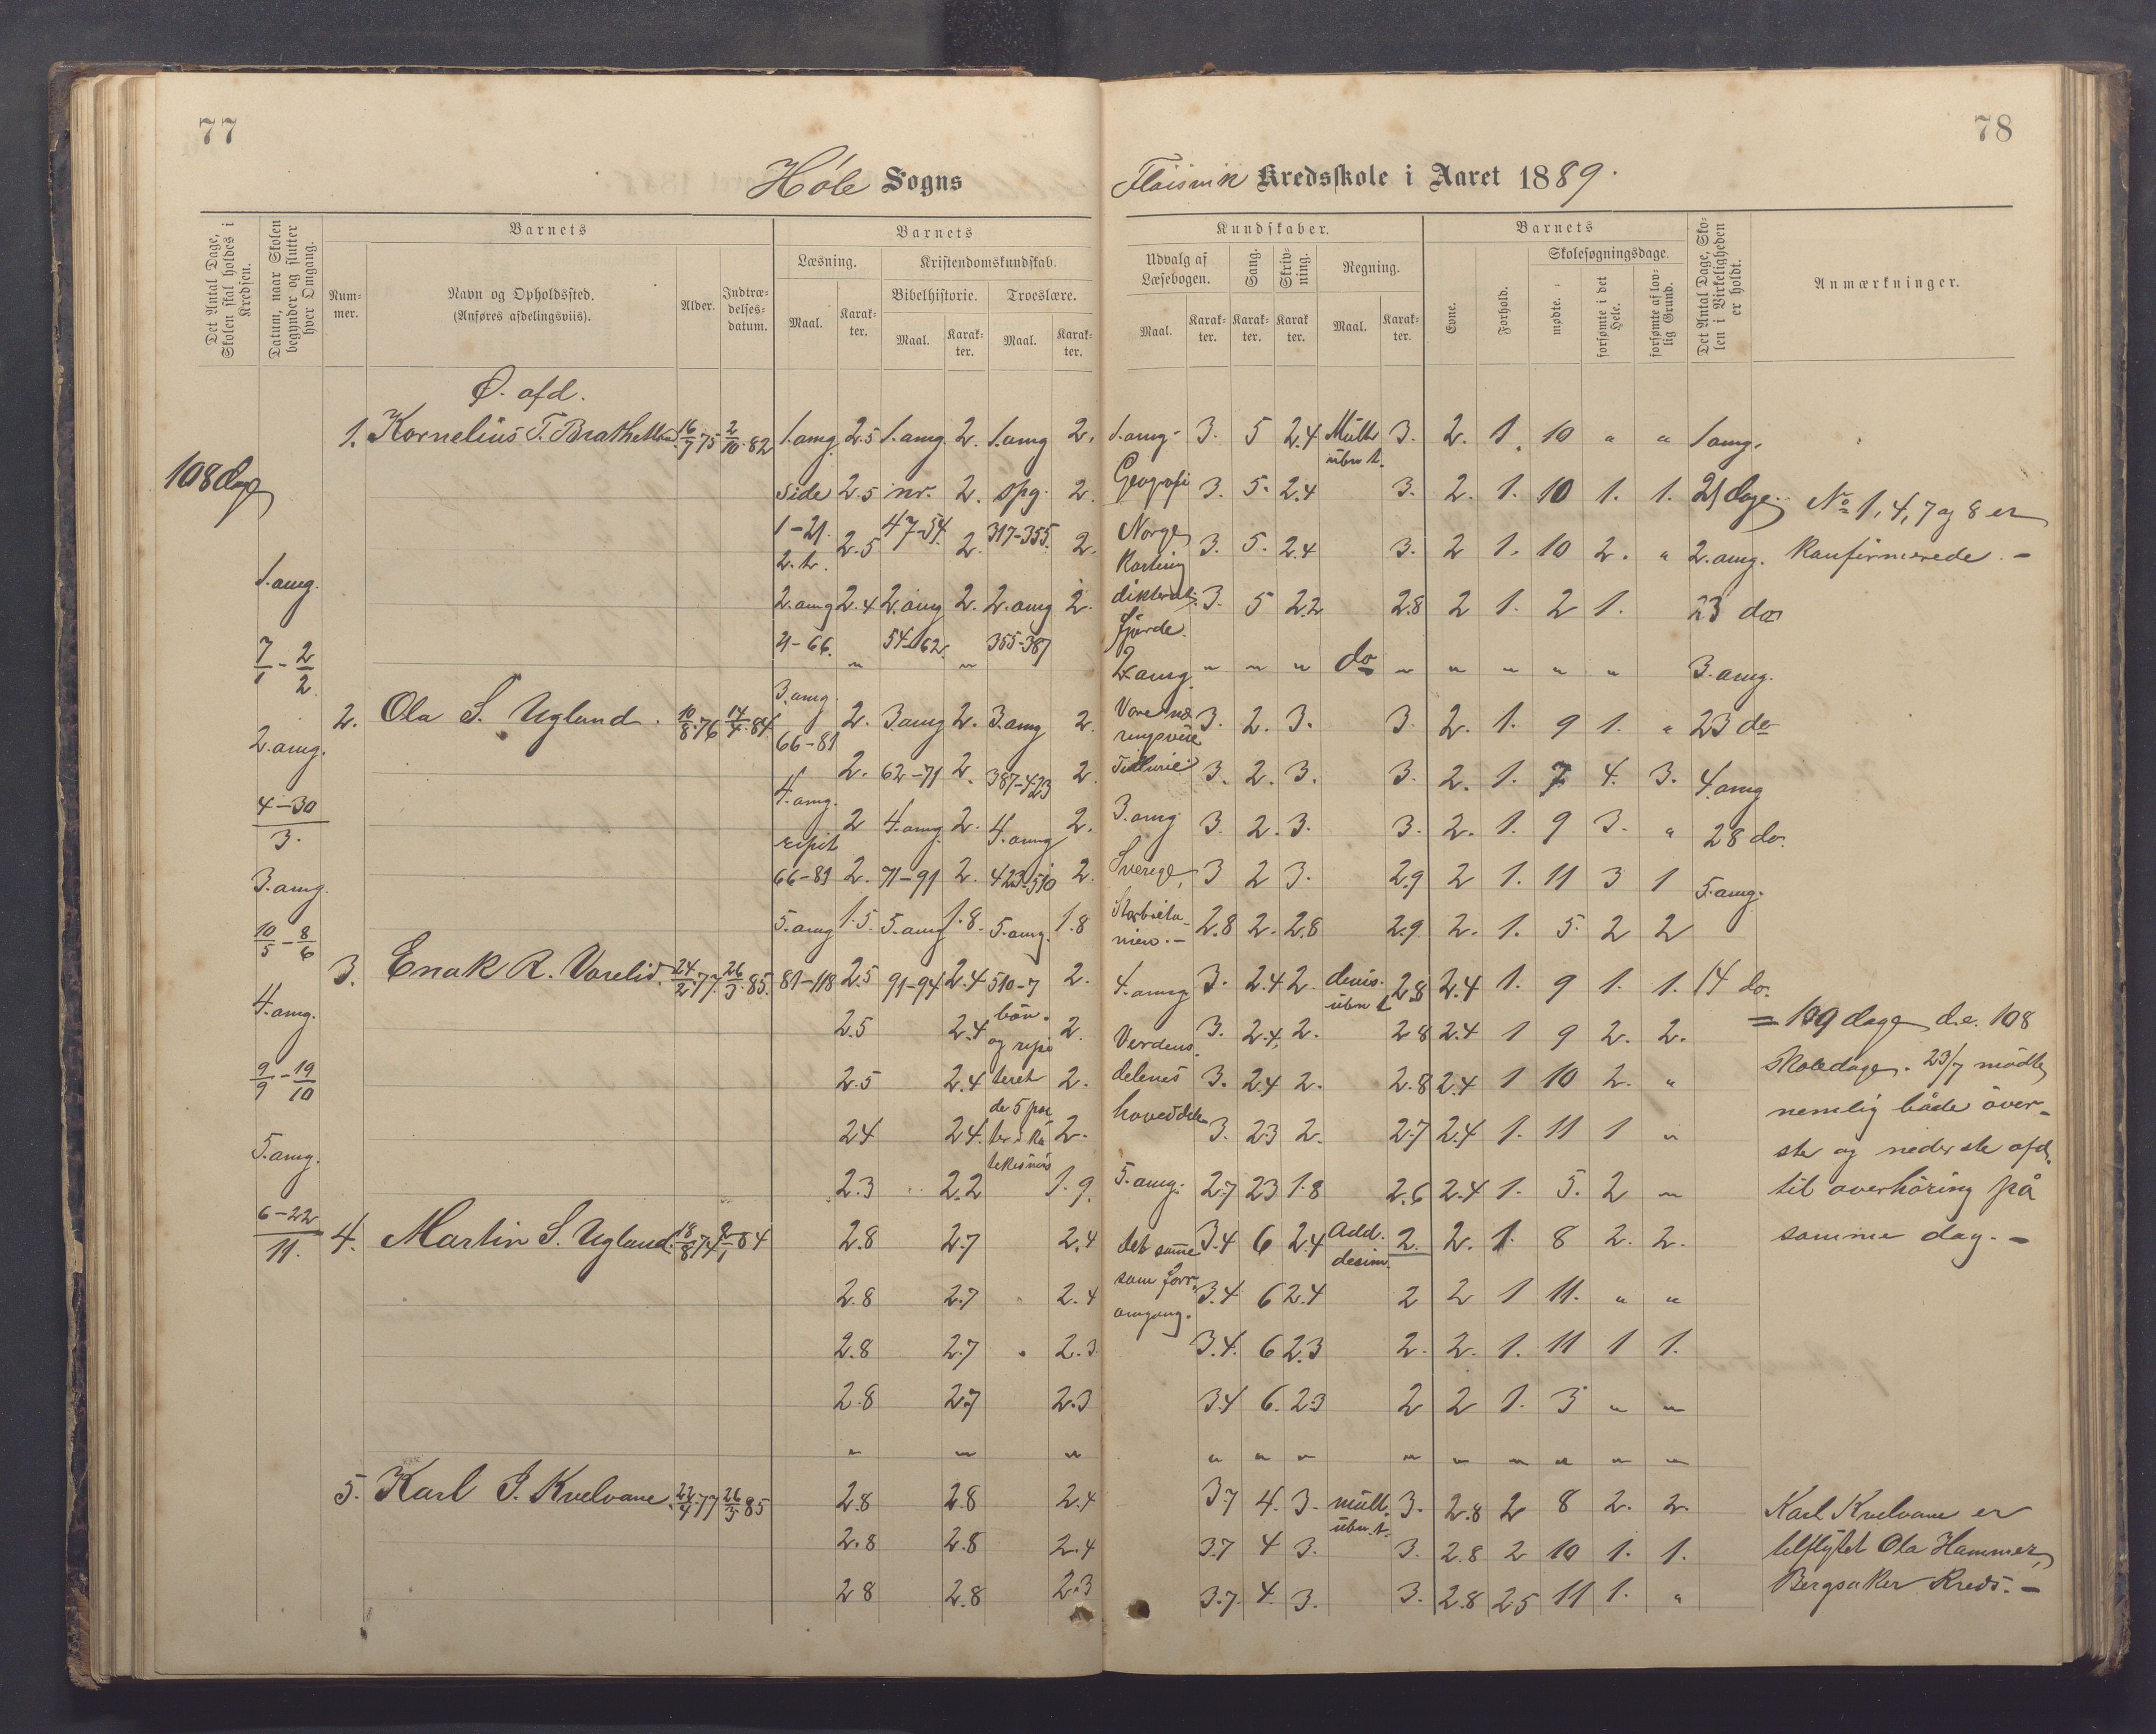 77
78
Høle Sogns
Fløisvik Kredsskole i Aaret 1889.
Det Antal Dage, Skolen skal holdes i Kredsen.
Datum, naar Skolen begynder og slutter hver Omgang.
Barnets
Nummer.
Navn og Opholdssted.
(Anføres afdelingsviis).
Alder.
Indtrædelses-datum.
Barnets
Læsning.
Maal.
Karakter.
Kristendomskundskab.
Bibelhistorie.
Maal.
Karakter.
Troeslære.
Maal.
Karakter.
Kundskaber.
Udvalg af Læsebogen.
Maal.
Karakter.
Sang.
Karakter.
Skrivning.
Karakter.
Regning.
Maal.
Karakter.
Barnets
Evne.
Forhold.
Skolesøgningsdage.
mødte.
forsømte i det Hele.
forsømte af lovlig Grund.
Det Antal Dage, Skolen i Virkeligheden er holdt.
Anmærkninger.
Ø. afd.
108 dage
1. omg.
7/1 - 2/2
2. omg.
4-30/3.
3. omg.
10/5 - 8/6
4. omg.
9/9 - 19/10
5. omg.
6-22/11.
1. Kornelius T. 16/7 75 2/10 82 1. omg. 2.5 1. omg. 2. 1. omg 2. 1. omg. 3. 5 2.4 Mult. 3. 2. 1. 10 " " 1 omg.
side 2.5 nr. 2. spg. 2. Geografi 3. 5. 2.4 3. 2. 1. 10 1. 1. 21 dage.
1-21. 2.5 47-54. 2. 317-355. 2. Norges 3. 5. 2.4 3. 2 1. 10 2. " 2. omg.
2. omg 2.4 2. omg 2. 2. omg 2. 3. 5 2.2 2.8 2 1. 2 1. 23 do
4-66. " 54-62. " 355-387 2. omg. " " " do " " " " " 3. omg.
fjorde.
3. omg.
2. Ola S. Ugland. 10/8 76 14/4 84. 66-81 2. 3. omg 2. 3. omg 2. Vore næringsveie 3. 2. 3. 3. 2. 1. 9 1. " 23 do
4. omg. 2. 62-71 2. 387-423 2. 3. 2. 3. 3. 2. 1. 7 4. 3. 4. omg
repit 2 4. omg. 2. 4. omg 2. 3. omg 3. 2. 3. 3. 2. 1. 9 3. " 28 do.
66-81 2. 71-91 2. 423-510 2. Sverige, 3 2 3. 2.9 2 1. 11 3 1 5. omg.
5. omg 1.5. 5. omg 1.8. 5. omg. 1.8 2.8 2. 2.8 2.9 2. 1. 5. 2 2
3. Enok R. Vorelid. 24/2 77. 26/3 85. 81-118 2.5 91-94 2.4 510-7 2. 4. omg 3. 2.4 2. 2.8 2.4 1. 9 1. 1. 14 do.
2.5 2.4 bön. og repe 2. Verdens 3. 2.4. 2. 2.8 2.4 1 9 2. 2.
2.5 2.4 teret 2. delenes 3. 2.4 2. 2.8 2.4 1 10 2. "
2.4 2.4. 2. hoveddele 3. 2.3 2. 2.7 2.4 1. 11 1 "
2.3 2.2 1.9. 5. omg. 2.7 2.3 1.8 2.6 2.4 1. 5. 2 "
4. Martin S. Ugland. 18/8 74 84 2.8 2.7 2.4 det samme 3.4 6 2.4 Add. desim. 2. 2. 1. 8 2. 2.
2.8 2.7 2.4 som forr. 3.4 6 2.4 2 2 1 11. " "
omgang.
2.8 2.7 2.3 3.4. 6 2.3 2. 2. 1. 11 1 1.
2.8 2.7 2.3 3.4 6. 2.3 2 2 1. 3 " "
" " " " " " " " " " " "
5. Karl J. Kvelvane. 22/4 77 26/3 85 2.8 2.8 2.4 3.7 4. 3. mult. 3. 2.8 2 8 2. 2.
2.8 2.8 2.4 3.7 4 3. 3. 2.8 2 10 1. 1.
2.8 2.8 2.3 3.7. 4. 3. 3. 2.8 2.5 11 1. "
No 1, 4, 7 og 8 er
konfirmerede. -
= 109 dage d.e. 108
skoledage. 23/7 mödte
nemlig både över-
ste og nederste afd.
til overhöring på
samme dag. -
Karl Kvelvane er
tilflytet Ola Hammer,
Bergsaker Kreds. -